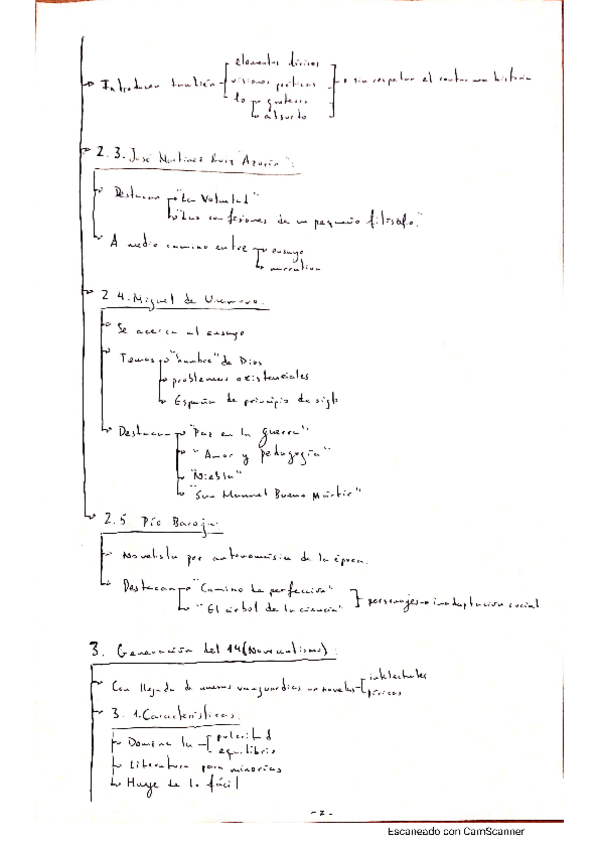 elementos líricos
Introducen también visiones poéticas sin respetar el contar una historia
lo grotesco
absurdo
2.3. José Martínez Ruiz "Azorín":
Destacan "La Voluntad"
"Las confesiones de un pequeño filósofo."
A medio camino entre ensayo
narrativa
2.4. Miguel de Unamuno:
Se acerca al ensayo
Temas "hambre" de Dios
problemas existenciales
España de principio de siglo
Destacan "Paz en la guerra"
"Amor y pedagogía"
"Niebla"
"San Manuel Bueno Mártir"
2.5 Pío Baroja
Novelista por autonomásia de la época.
Destacan "Camino de perfección"
"El árbol de la ciencia" personajes inadaptación social
3. Generación del 14 (Novecentismo):
Con llegada de nuevas vanguardias novelas intelectuales
líricas
3.1. Características:
Domina la pulcritud
equilibrio
Literatura para minorías
Huye de lo fácil
-2-
Escaneado con CamScanner